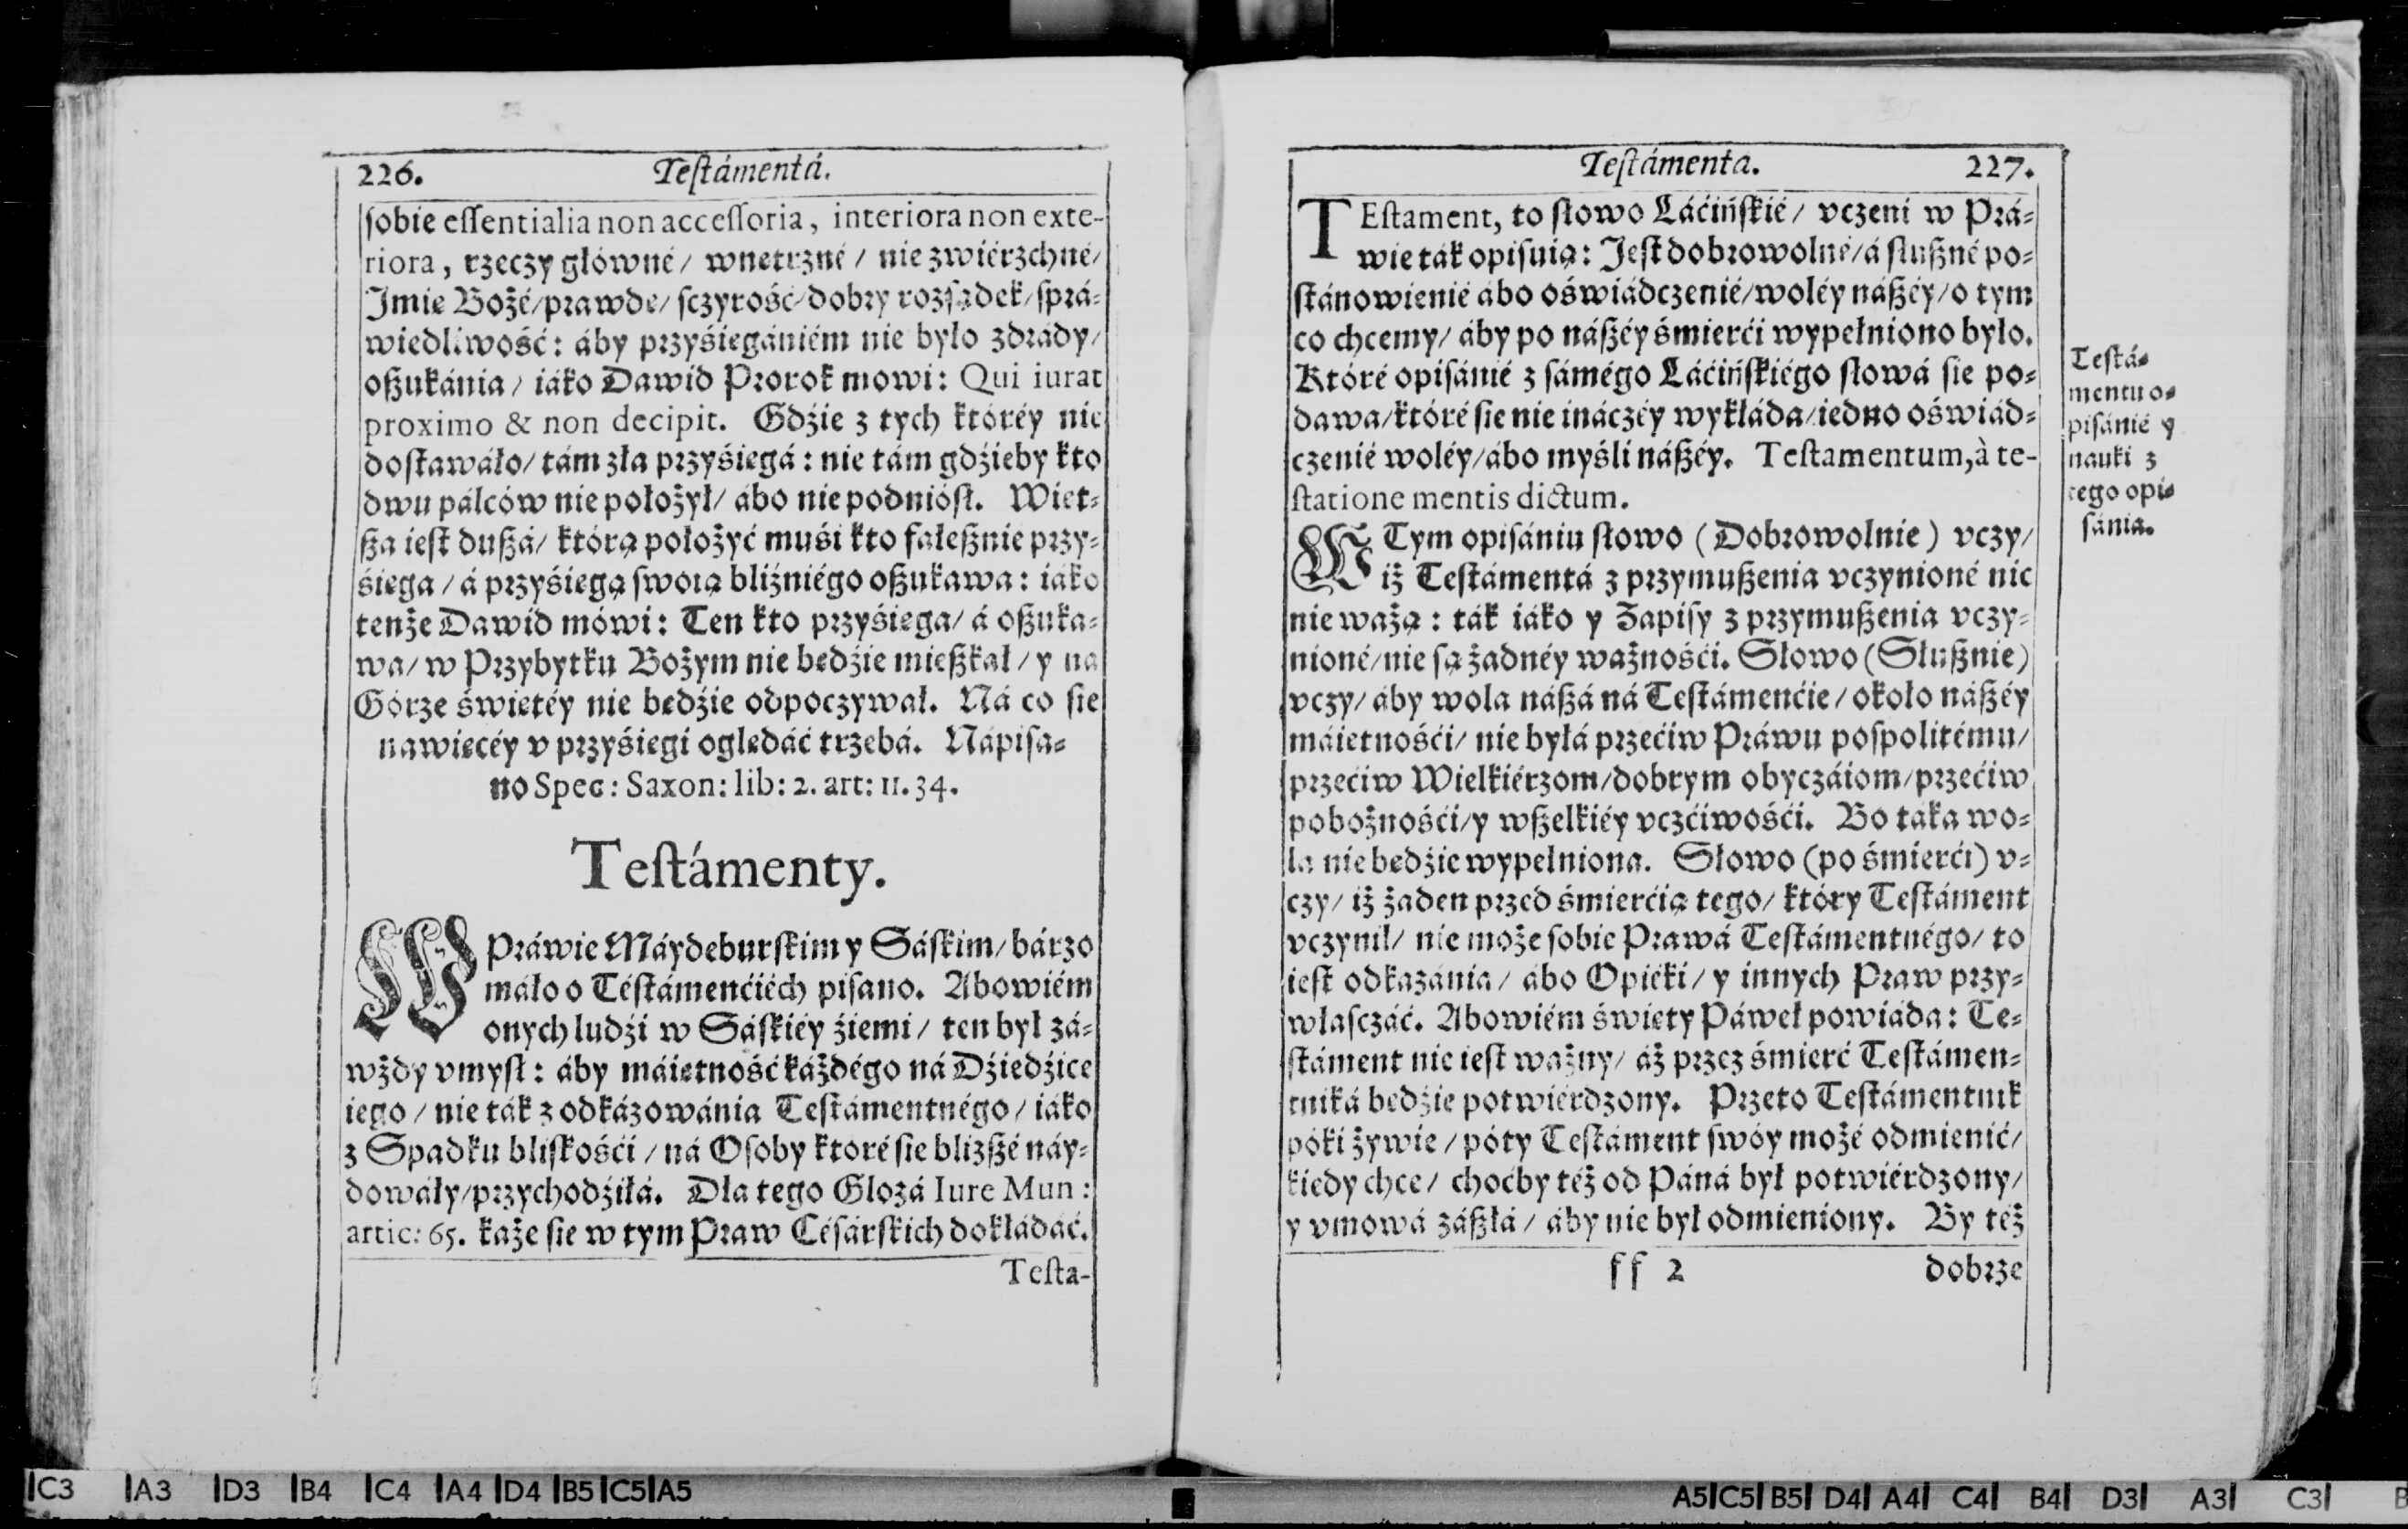 226. Teſtámentá.
ſobie eſſentialia non acceſſoria, interiora non exte-
riora, rzeczy główné/ wnetrzné/ nie zwiérzchné/
Jmie Bożé/prawdę/ ſczyrość/dobry rozſądek/ſprá-
wiedliwość: áby przyśięgániém nie było zdrády/
oßukánia/ iáko Dawid Prorok mowi: Qui iurat
proximo & non decipit. Gdźie z tych któréy nie
doſtawáło/ tám zła przyśięgá: nie tám gdźieby kto
dwu pálców nie położył/ ábo nie podniósł. Wiet-
ßa ieſt dußá/ którą położyć muśi kto fałeßnie przy-
śięga/ á przyśięgą ſwoią bliźniégo oßukawa: iáko
tenże Dawid mówi: Ten kto przyśięga/ á oßuka-
wa/ w Przybytku Bożym nie będźie mießkał/ y na
Górze świętéy nie będźie odpoczywał. Ná co ſie
nawięcéy v przyśięgi oględáć trzebá. Nápiſa-
no Spec: Saxon: lib: 2. art: 11. 34.
Teſtámenty.
W Práwie Máydeburſkim y Sáſkim/ bárzo
máło o Téſtámenćiéch piſano. Abowiém
onych ludźi w Sáſkiéy źiemi/ ten był zá-
wżdy vmysł: áby máiętność káżdégo ná Dźiedźice
iego/ nie ták z odkázowánia Teſtámentnégo/ iáko
z Spadku bliſkośći/ ná Oſoby ktoré ſie bliższé náy-
dowáły/przychodźiłá. Dla tego Glozá Iure Mun:
artic: 65. każe ſie w tym Praw Céſárſkich dokłádáć.
Teſta-
Teſtámenta. 227.
TEſtament, to słowo Láćińſkié/ vczeni w Prá-
wie ták opiſuią: Jeſt dobrowolné/á słußné po-
ſtánowienié ábo oświádczenié/woléy náßéy/o tym
co chcemy/ áby po náßéy śmierći wypełniono było.
Któré opiſánié z ſámégo Láćińſkiégo słowá ſie po-
dawa/któré ſie nie ináczéy wykłáda/iedno oświád-
czenié woléy/ábo myśli náßéy. Teſtamentum, à te-
ſtatione mentis dictum.
W Tym opiſániu słowo (Dobrowolnie) vczy/
iż Teſtámentá z przymußenia vczynioné nic
nie ważą: ták iáko y Zapiſy z przymußenia vczy-
nioné/nie ſą żadnéy ważnośći. Słowo (Słußnie)
vczy/ áby wola náßá ná Teſtámenćie/ około náßéy
máiętnośći/ nie byłá przećiw Práwu poſpolitému/
przećiw Wielkiérzom/dobrym obyczáiom/przećiw
pobożnośći/y wßelkiéy vczćiwośći. Bo taka wo-
la nie będźie wypełniona. Słowo (po śmierći) v-
czy/ iż żaden przed śmierćią tego/ który Teſtáment
vczynił/ nie może ſobie Prawá Teſtámentnégo/ to
ieſt odkazánia/ ábo Opiéki/ y innych Praw przy-
właſczáć. Abowiém święty Páweł powiáda: Te-
ſtáment nie ieſt ważny/ áż przez śmierć Teſtámen-
tniká będźie potwiérdzony. Przeto Teſtámentnik
póki żywie/ póty Teſtáment ſwóy możé odmienić/
kiedy chce/ choćby téż od Páná był potwiérdzony/
y vmowá záßłá/ áby nie był odmieniony. By téż
ff 2 dobrze
Teſtá-
mentu o-
piſánié y
nauki z
tego opi-
ſánia.
C3 A3 D3 B4 C4 A4 D4 B5 C5 A5
A5 C5 B5 D4 A4 C4 B4 D3 A3 C3 B